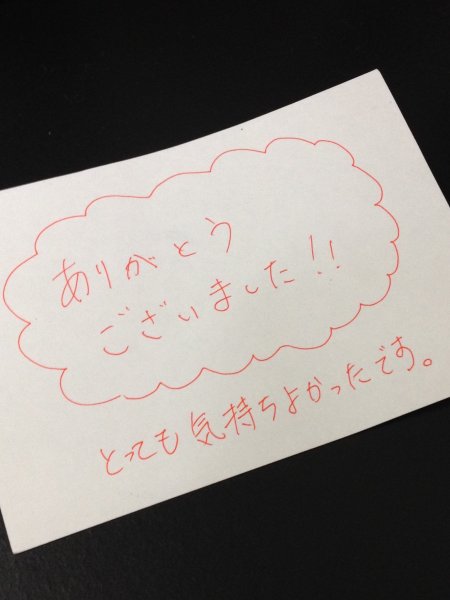 ありがとう
ございました!!
とっても気持ちよかったです。